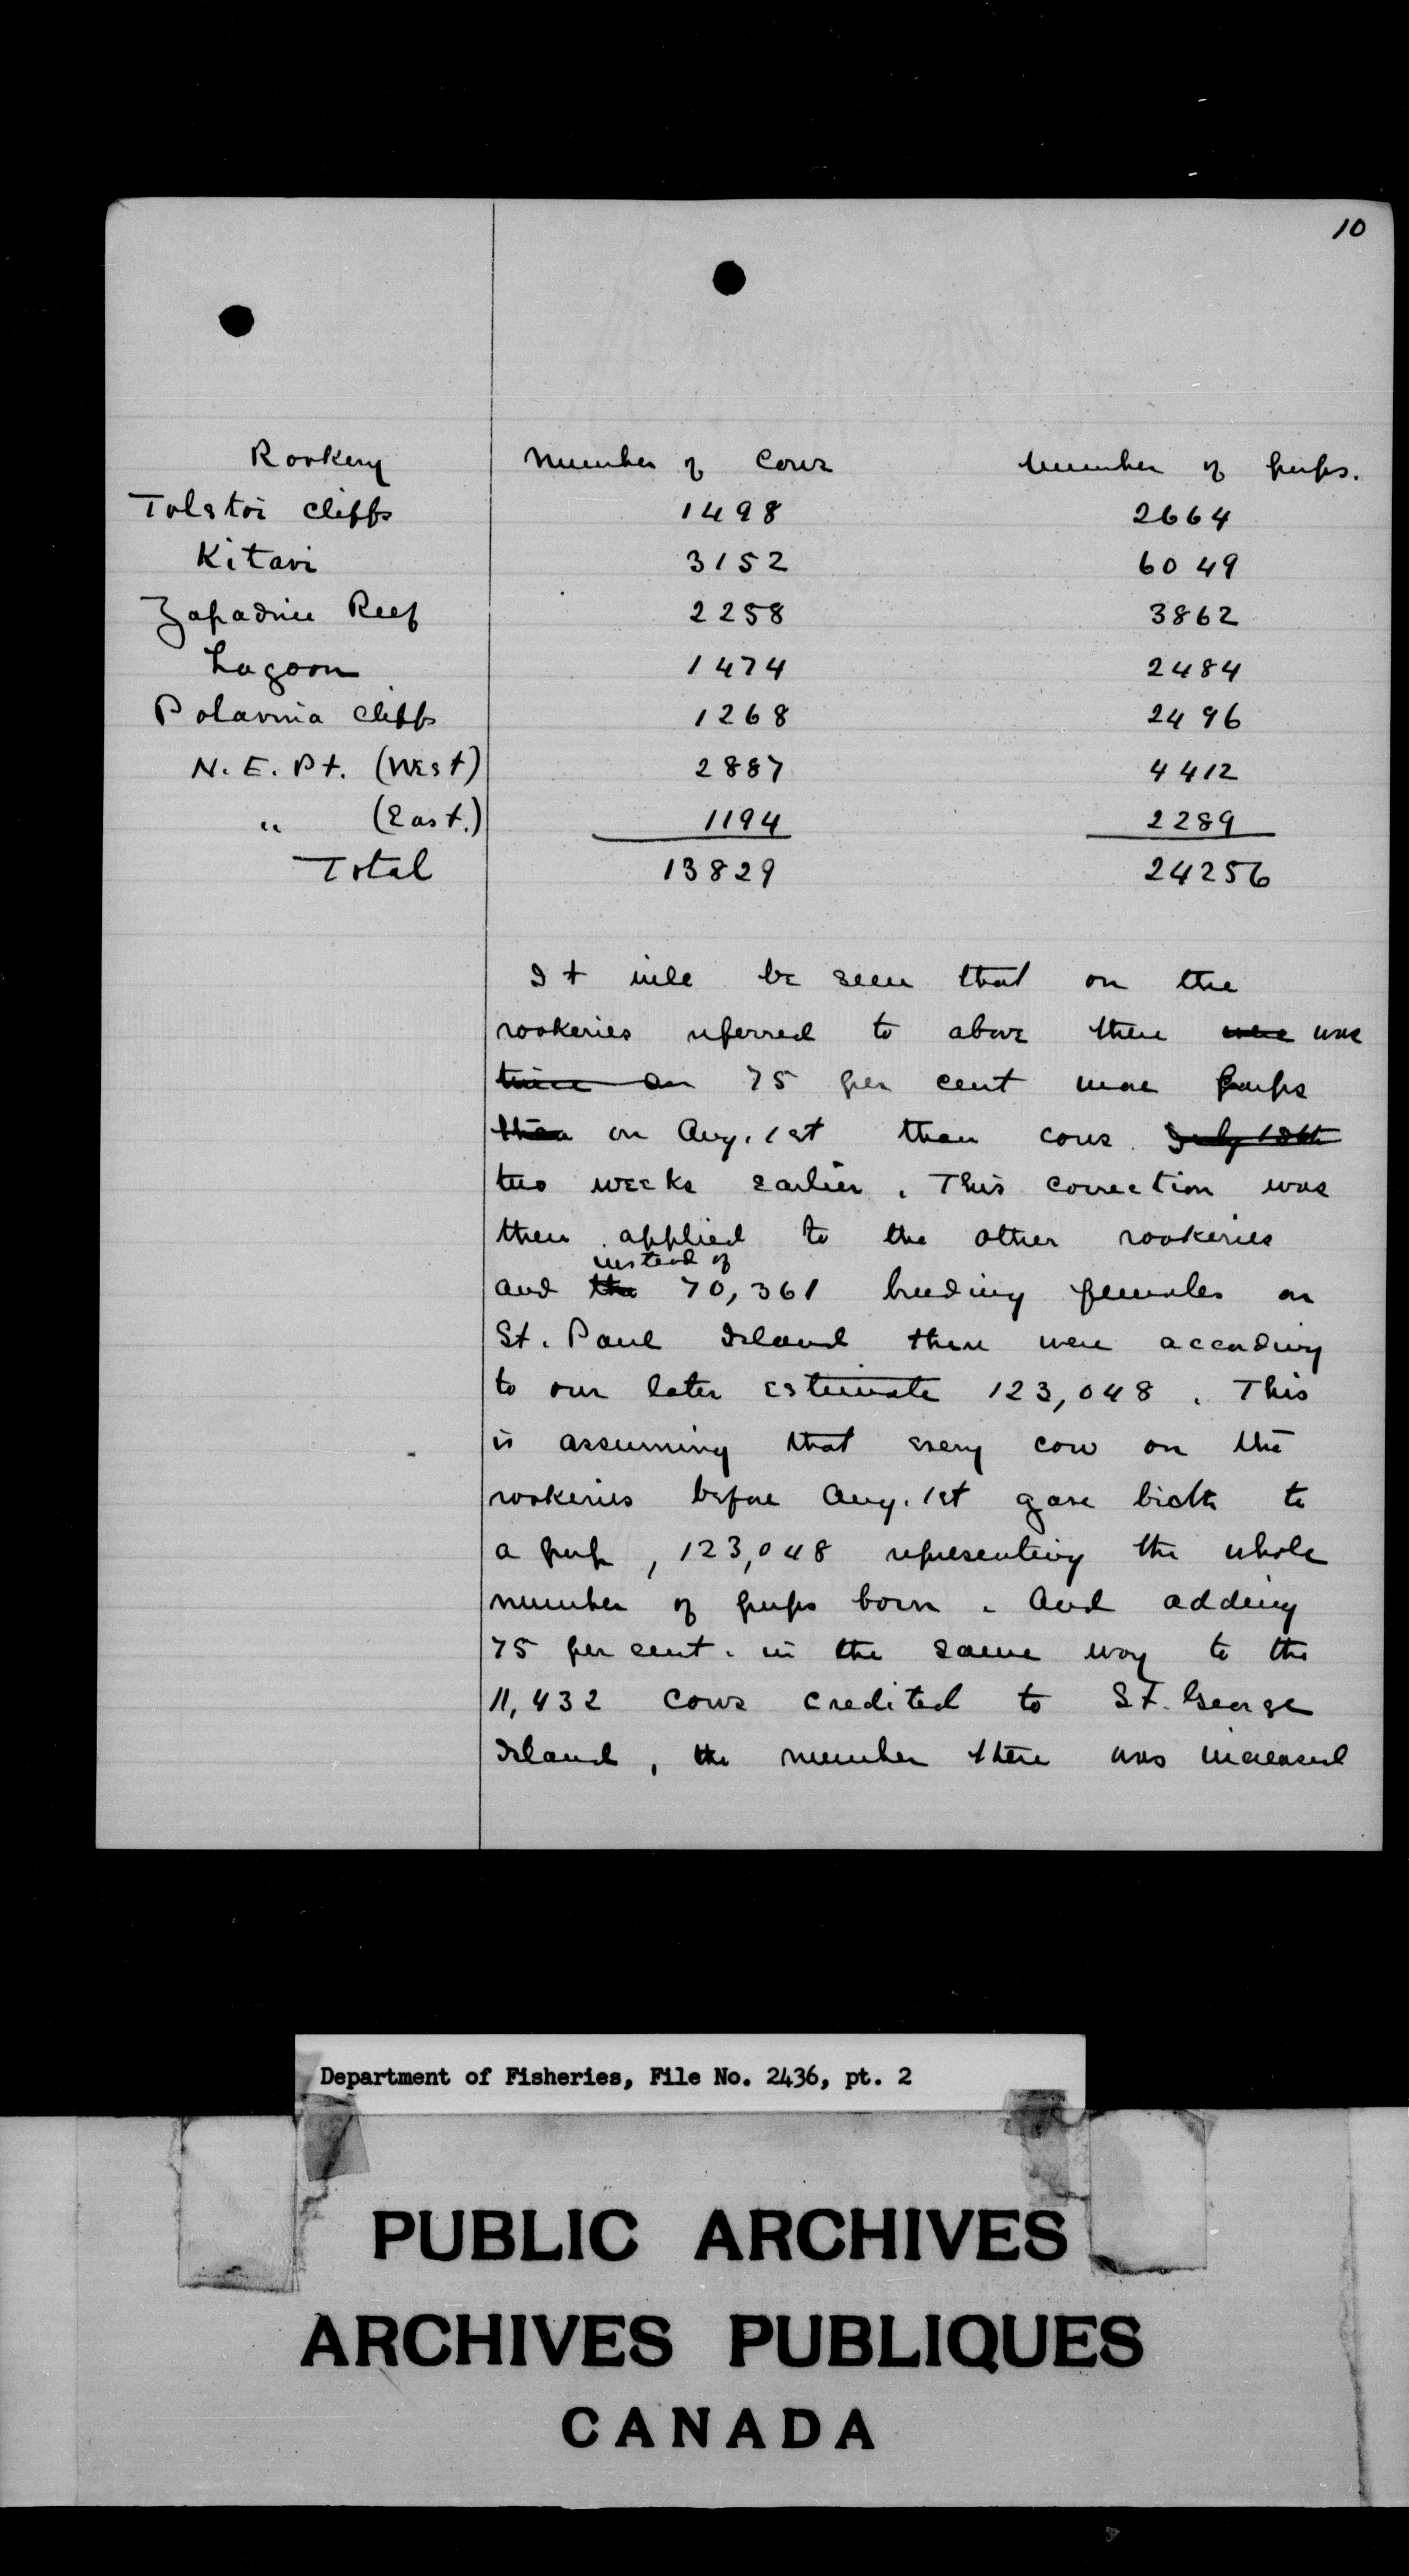 10
Rookery Number of Cows Number of pups.
Tolstoi Cliffs 1498 2664
Kitavi 3152 6049
Zapadnie Reef 2258 3862
Lagoon 1474 2484
Polavina Cliffs 1268 2496
N. E. Pt. (West) 2887 4412
" (East.) 1194 2289
Total 13829 24256
It will be seen that on the
rookeries referred to above there were was
twice as 75 per cent more pups
than on Aug. 1st than cows July 18th
two weeks earlier. This correction was
then applied to the other rookeries
instead of
and the 70,361 breeding females on
St. Paul Island there were according
to our later estimate 123,048. This
is assuming that every cow on the
rookeries before Aug. 1st gave birth to
a pup, 123,048 representing the whole
number of pups born. And adding
75 per cent. in the same way to the
11,432 cows credited to St. George
Island, the number there was increased
Department of Fisheries, File No. 2436, pt. 2
PUBLIC ARCHIVES
ARCHIVES PUBLIQUES
CANADA